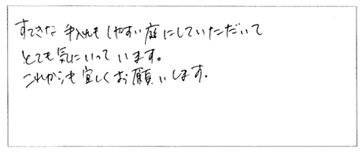 すてきな手入れもしやすい庭にしていただいて
とても気にいっています。
これからも宜しくお願いします。